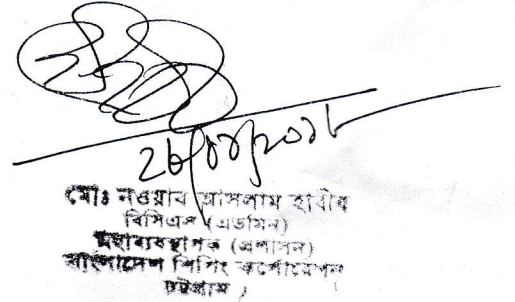 মোঃ নওয়াব আসলাম হাবীব
বিসিএস (এডমিন)
মহাব্যবস্থাপক (প্রশাসন)
বাংলাদেশ শিপিং কর্পোরেশন
চট্টগ্রাম